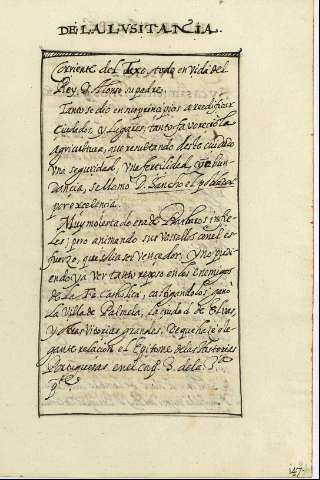 DE LA LUSITANIA.
Corriente del Texo, todo en vida del
Rey D. Alonso su padre.
Tanto se dio en sus principios a reedificar
Ciudades, y Lugares, tanto favorecio la
agricultura, que resultando deste cuidado
una seguridad, una fertilidad, y abun
dancia, se llamo D. Sancho el poblador
por excelencia.
Muy molestado era de Barbaros infie
les; pero animando sus vasallos con el es
fuerzo, que solia ser vencedor, y no pu
diendo ya ver tanto reposo en los enemigos
de la Fe Catholica, castigandolos, ganò
la Villa de Palmela, la ciudad de Elvas,
y otras vitorias grandes. De que haze ele
gante relacion el Epitome de las Historias
Portuguesas, en el cap. 3. de la 3.
pte
47